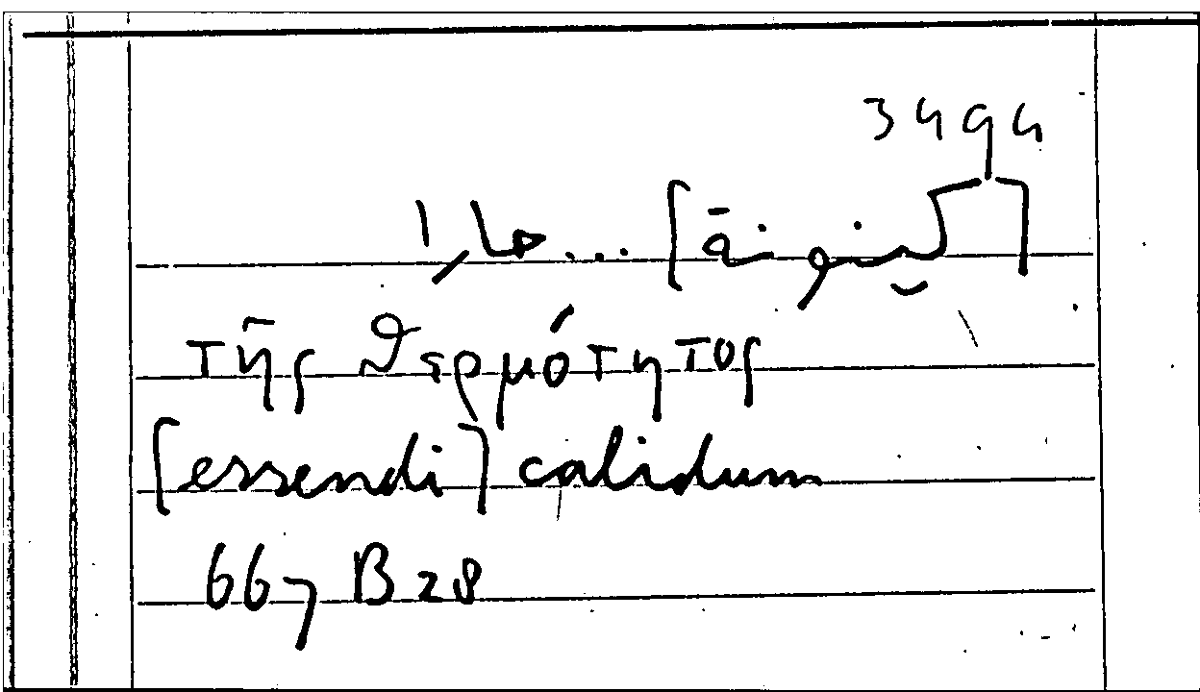 3494
[كينونة] ... حارا
τῆς θερμότητος
[essendi] calidum
667 B 28